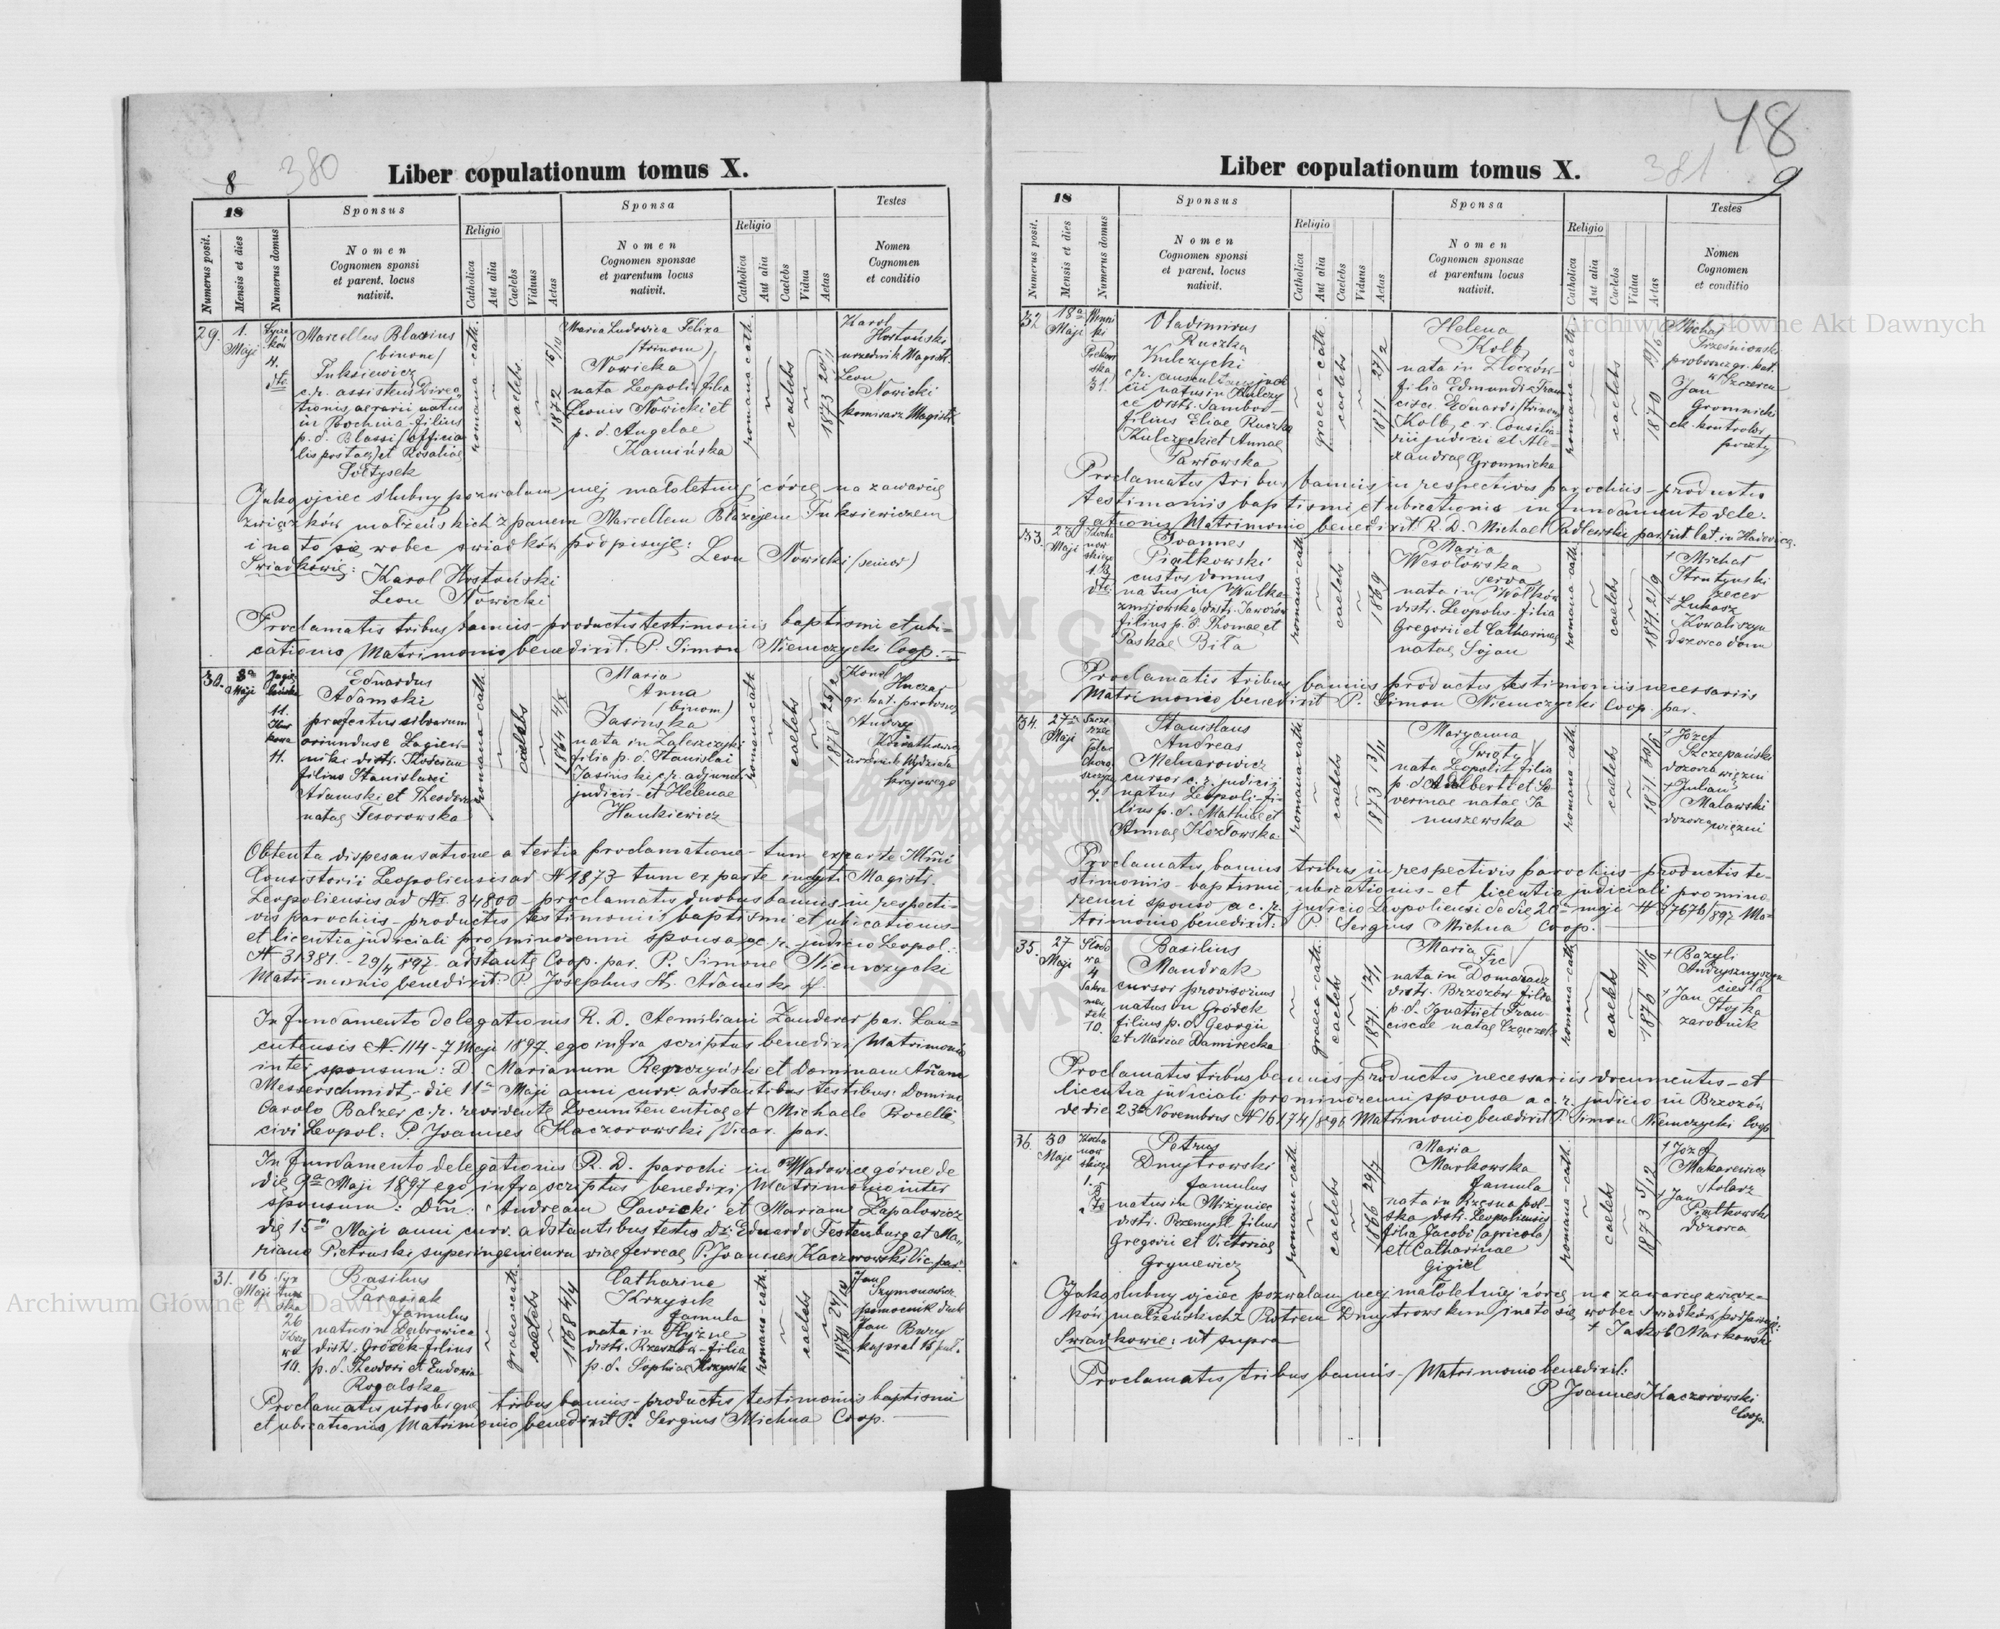 48
8
380
Liber copulationum tomus X.
18
Sponsus
Sponsa
Testes
Numerus posit.
Mensis et dies
Numerus domus
Nomen
Cognomen sponsi
et parent. locus
nativit.
Religio
Catholica
Aut alia
Caelebs
Viduus
Aetas
Nomen
Cognomen sponsae
et parentum locus
nativit.
Religio
Catholica
Aut alia
Caelebs
Vidua
Aetas
Nomen
Cognomen
et conditio
29.
1.
Maji
4.
Marcellus Blasius
(binom)
Tuksiewicz
c.r. assistens Direc-
tionis aerarii natus
in Bochnia filius
p. d. Blasii (officia-
lis postae) et Rosaliae
Sołtysek
romana-cath.
caelebs
1872
Maria Ludovica Felixa
(trinom)
Nowicka
nata Leopoli filia
Leonis Nowicki et
p. d. Angelae
Kamińska
romana cath.
caelebs
1873
Karol
urzednik Magistr.
Leon
Nowicki
komisarz Magistr.
Jako ojciec ślubny pozwalam mej małoletniej córce na zawarcie
związków małżeńskich z panem Marcellem Błażejem Tuksiewiczem
i na to się wobec swiadków podpisuję: Leon Nowicki (senior)
Swiadkowie:
Karol
Leon Nowicki
Proclamatis tribus bannis - productis testimoniis baptismi et ubi-
cationis Matrimonio benedixit. P. Simon Niemczycki Coop.
30.
8a
Maji
11.
11.
Eduardus
Adamski
praefectus silvarum
oriundus e Łagiew-
niki distr. Kościan
filius Stanislai
Adamski et Theodorae
natae Tesorowska
romana-cath.
caelebs
1864 4/X
Maria
Anna
(binom)
Jasińska
nata in Zaleszczyki
filia p. d. Stanislai
Jasinski c.r. adjuncti
judicii et Helenae
Hankiewicz
romana cath
caelebs
1878 25/2
Kornel
gr. kat. proboszcz
Andrzej
urzednik Wydziału
krajowego
Obtenta dispensatione a tertia proclamatione tum ex parte Illmi
Consistorii Leopoliensis ad N 1873 tum ex parte inclyti Magistr.
Leopoliensis ad Nr. 34800 - proclamatis duobus bannis in respecti-
vis parochiis - productis testimoniis baptismi et ubicationis
et licentia judiciali pro minorenni sponsa a c. r. judicio Leopol.:
N 31381. - 29/4 897 adstante Coop. par. P. Simone Niemczycki
Matrimonio benedixit: P. Josephus St. Adamski
In fundamento delegationis R. D. Aemiliani Zanderer par. Lan-
cutensis N. 114 - 7 Maji 1897 ego infra scriptus benedixi Matrimonio
inter sponsum: D. Marianum et Dominam Annam
Messerschmidt - die 11a Maji anni curr. adstantibus testibus: Domino
Carolo Balzer c.r. revidente Locumtenentiae et Michaele
civi Leopol: P. Joannes Kaczorowski Vicar. par.
In fundamento delegationis R. D. parochi in Wadowice górne de
die 9a Maji 1897 ego infra scriptus benedixi Matrimonio inter
sponsum: Dm: Andream Sawicki et Mariam Zapałowicz
die 15a Maji anni curr. adstantibus testes Di: Eduardo Festenburg et Ma-
riano Pietruski superingenieura viae ferreae P. Joannes Kaczorowski Vic. par.
31.
16
Maji
26
10.
Basilius
Tarasiak
famulus
natus in Dąbrowica
distr. Gródek filius
p. d. Theodori et Eudoxia
Rogalska
graeco-cath.
caelebs
1868 4/4
Catharina
Krzysik
famula
nata in Hyżne
distr. Rzeszów filia
p. d. Sophiae Krzysik
romano-cath.
caelebs
Jan
Szymonowicz
pomocnik
Jan
kapral 15 puł.
Proclamatis utrobique tribus bannis - productis testimoniis baptismi
et ubicationis Matrimonio benedixit P. Sergius Michna Coop.
381
9
Liber copulationum tomus X.
18
Sponsus
Sponsa
Testes
Numerus posit.
Mensis et dies
Numerus domus
Nomen
Cognomen sponsi
et parent. locus
nativit.
Religio
Catholica
Aut alia
Caelebs
Viduus
Aetas
Nomen
Cognomen sponsae
et parentum locus
nativit.
Religio
Catholica
Aut alia
Caelebs
Vidua
Aetas
Nomen
Cognomen
et conditio
32.
18a
Maji
31.
Vladimirus
Ruczka
Kulczycki
c.r. auscultans judi-
cii natus in Kulczy-
ce distr. Sambor
filius Eliae Ruczka
Kulczycki et Annae
Pawłowska
graeco-cath.
caelebs
1871. 27/2
Helena
Kolb
nata in Złoczów
filia Edmundi Fran-
cisci Eduardi (trinom)
Kolb, c. r. Consilia-
rii judicii et Ale-
xandrae Gromnicka
romana-cath.
caelebs
1870 19/6
Michał
proboszcz gr. kat.
w Szczercu
Jan
Gromnicki
ck. kontrolor
poczty
Proclamatis tribus bannis in respectivis parochiis - productis
testimoniis baptismi et ubicationis in fundamento dele-
gationis Matrimonio benedixit R. D. Michael Padlewski par. rit. lat. in
33.
23
Maji
13
Joannes
Piątkowski
custos domus
natus in Wulka
zmijowska distr. Jaworów
filius p. d. Thomae et
Paskae Biła
romana-cath.
caelebs
1869
Maria
Wesołowska
serva
nata in Wołków
distr. Leopolis filia
Gregorii et Catharinae
natae Sojan
romana-cath.
caelebs
1871. 21/9
+ Michał
Strutynski
zecer
+ Łukasz
Kowaliszyn
dozorca domu
Proclamatis tribus bannis productis testimoniis necessariis
Matrimonio benedixit P. Simon Niemczycki Coop. par.
34.
27a
Maji
7.
Stanislaus
Andreas
Melnarowicz
cursor c.r. judicii
natus Leopoli fi-
lius p. d. Mathiae et
Annae Kozłowska
romana cath.
caelebs
1873 13/11
Maryanna
Święty
nata Leopoli filia
p. d. Adalberti et Se-
verinae natae Ja-
nuszewska
romana-cath.
caelebs
1871. 30/5
+ Józef
Szczepański
dozorca więzni
+ Julian
Malawski
dozorca więzni
Proclamatis bannis tribus in respectivis parochiis - productis te-
stimoniis - baptismi, ubicationis - et licentia judiciali pro mino-
renni sponso a c. r. judicio Leopoliensi de die 20a maji N 37676/897 Ma-
trimonio benedixit: P. Sergius Michna Coop.
35.
27
Maji
4
10.
Basilius
Mandrak
cursor provisorius
natus in Gródek
filius p. d. Georgii
et Mariae Damirecka
graeco-cath.
caelebs
1871. 12/1
Maria Fic
nata in Domaradz
distr. Brzozów filia
p. d. Ignatii et Fran-
ciscae natae
romana-cath.
caelebs
1876 14/6
+ Bazyli
cieśla
+ Jan
Stojka
zarobnik
Proclamatis tribus bannis - productis necessariis documentis - et
licentia judiciali pro minorenni sponsa a c. r. judicio in Brzozów
de die 23a Novembris N 16174/896 Matrimonio benedixit P. Simon Niemczycki Coop
36.
30
Maji
1.
Petrus
Dmytrowski
famulus
natus in Miżyniec
distr. Przemyśl filius
Gregorii et Victoriae
Gryniewicz
romana-cath.
caelebs
1866 29/7
Maria
Markowska
famula
nata in Rzesna pol-
ska distr. Leopoliensis
filia Jacobi (agricola)
et Catharinae
Gigiel
romana-cath.
caelebs
1873 5/12
+ Józef
Makarewicz
stolarz
+ Jan
Piątkowski
dozorca
Jako slubny ojciec pozwalam mej małoletniej córce na zawarcie związ-
ków małżeńskich z Piotrem Dmytrowskim i na to się wobec swiadków podpisuję:
Swiadkowie: ut supra
+ Jakób Markowski
Proclamatis tribus bannis - Matrimonio benedixit:
P. Joannes Kaczorowski
Coop.
Archiwum Główne Akt Dawnych
Archiwum Główne Akt Dawnych